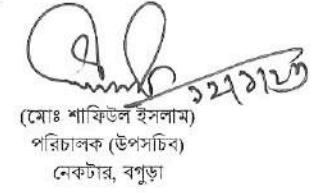 (মোঃ শাফিউল ইসলাম)
পরিচালক (উপসচিব)
নেকটার, বগুড়া